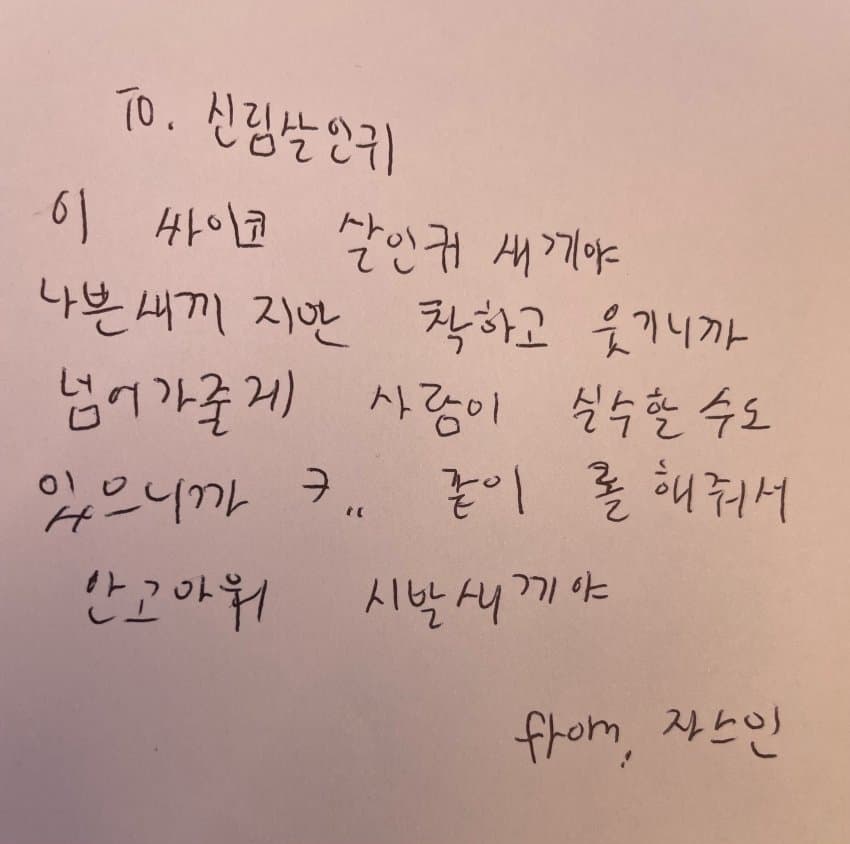 TO. 신림살인귀
이 싸이코 살인귀 새끼야
나쁜새끼 지만 착하고 웃기니까
넘어가줄게 사람이 실수할 수도
있으니까 ㅋ.. 같이 롤 해줘서
안고아워 시발새끼야
from, 자스민